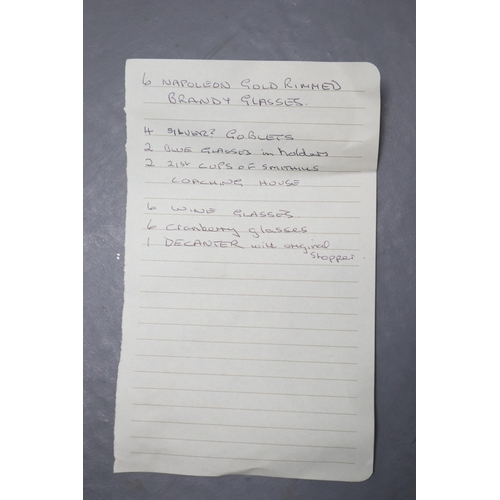 6 NAPOLEON GOLD RIMMED
BRANDY GLASSES.
4 SILVER? GOBLETS
2 BLUE GLASSES in holders
2 21st CUPS OF SMITHILLS
COACHING HOUSE
6 WINE GLASSES
6 Cranberry glasses
1 DECANTER with original
Stopper.